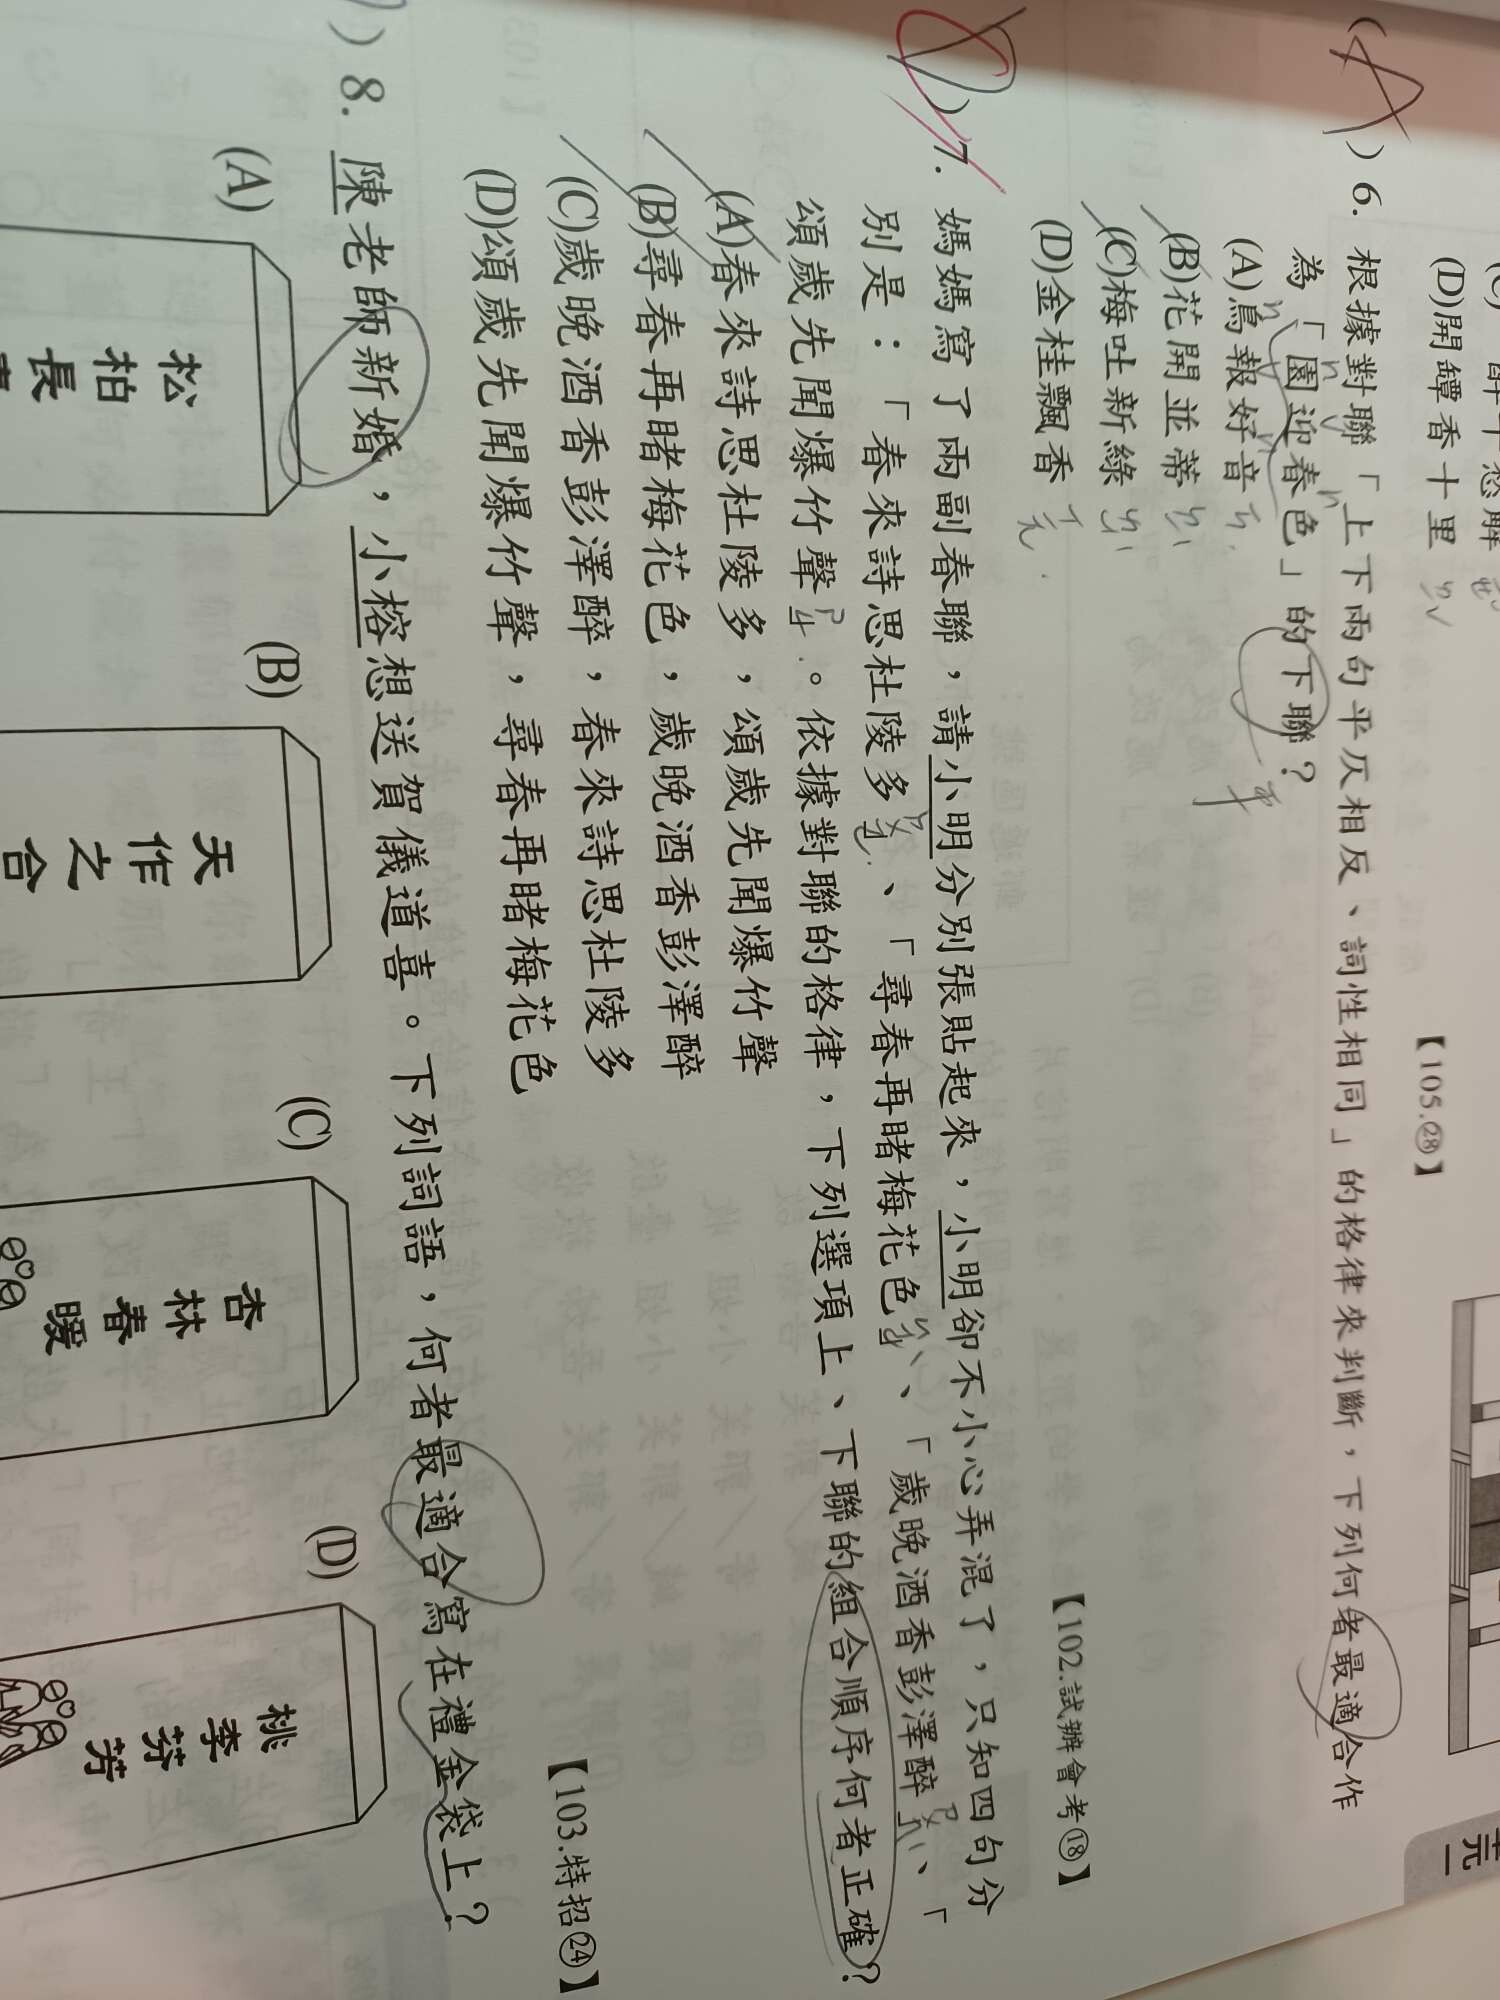 (D)開罈香十里
【105.㉘】
(A)6. 根據對聯「上下兩句平仄相反、詞性相同」的格律來判斷，下列何者最適合作
為「園迎春色」的下聯？
(A)鳥報好音
(B)花開並蒂
(C)梅吐新綠
(D)金桂飄香
【102.試辦會考⑱】
)7. 媽媽寫了兩副春聯，請小明分別張貼起來，小明卻不小心弄混了，只知四句分
別是：「春來詩思杜陵多」、「尋春再睹梅花色」、「歲晚酒香彭澤醉」、「
頌歲先聞爆竹聲」。依據對聯的格律，下列選項上、下聯的組合順序何者正確？
(A)春來詩思杜陵多，頌歲先聞爆竹聲
(B)尋春再睹梅花色，歲晚酒香彭澤醉
(C)歲晚酒香彭澤醉，春來詩思杜陵多
(D)頌歲先聞爆竹聲，尋春再睹梅花色
【103.特招㉔】
)8. 陳老師新婚，小榕想送賀儀道喜。下列詞語，何者最適合寫在禮金袋上？
(A)
松柏長
(B)
天作之合
(C)
杏林春暖
(D)
桃李芬芳